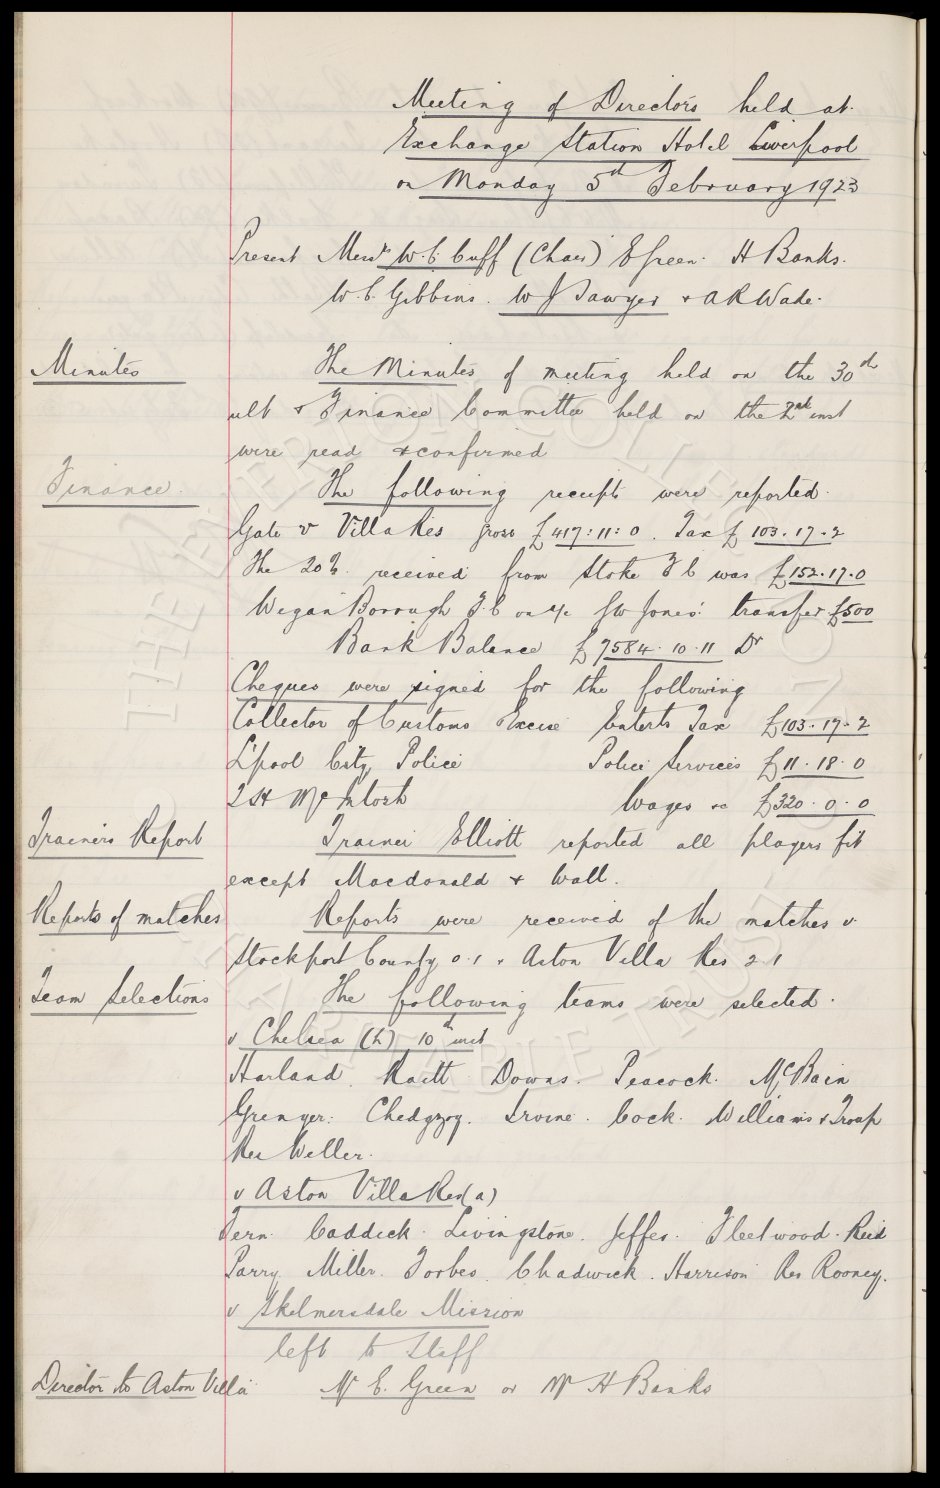 Meeting of Directors held at
Exchange Station Hotel Liverpool
on Monday 5th February 1923
Present Messrs W.C. Cuff (Chair) E Green. H Banks.
W.C. Gibbins. W J Sawyer & A R Wade.
Minutes The Minutes of meeting held on the 30th
ult & Finance Committee held on the 2nd inst
were read & confirmed
Finance. The following receipts were reported.
Gate v Villa Res gross £417:11:0. Tax £103.17.2
The 20% received from Stoke F C was £152.17.0
Wigan Borough F.C on a/c Jones' transfer £500
Bank Balance £7584.10.11 Dr
Cheques were signed for the following
Collector of Customs Excise Enterts Tax £103.17.2
L'pool City Police Police Services £11.18.0
McIntosh Wages &c £320.0.0
Trainers Report Trainer Elliott reported all players fit
except Macdonald & Wall.
Reports of matches Reports were received of the matches v
Stockport County 0.1 & Aston Villa Res 2.1
Team Selections The following teams were selected.
v Chelsea (h) 10th inst
Harland. Raitt. Downs. Peacock. McBain
Grenyer. Chedgzoy. Irvine. Cock. Williams & Troup
Res Weller.
v Aston Villa Res (a)
Fern. Caddick. Livingstone. Jeffes. Fleetwood. Reid
Parry. Miller. Forbes. Chadwick. Harrison Res Rooney.
v Skelmersdale Mission
left to Staff
Director to Aston Villa Mr E. Green or Mr H Banks
THE EVERTON COLLECTION
CHARITABLE TRUST